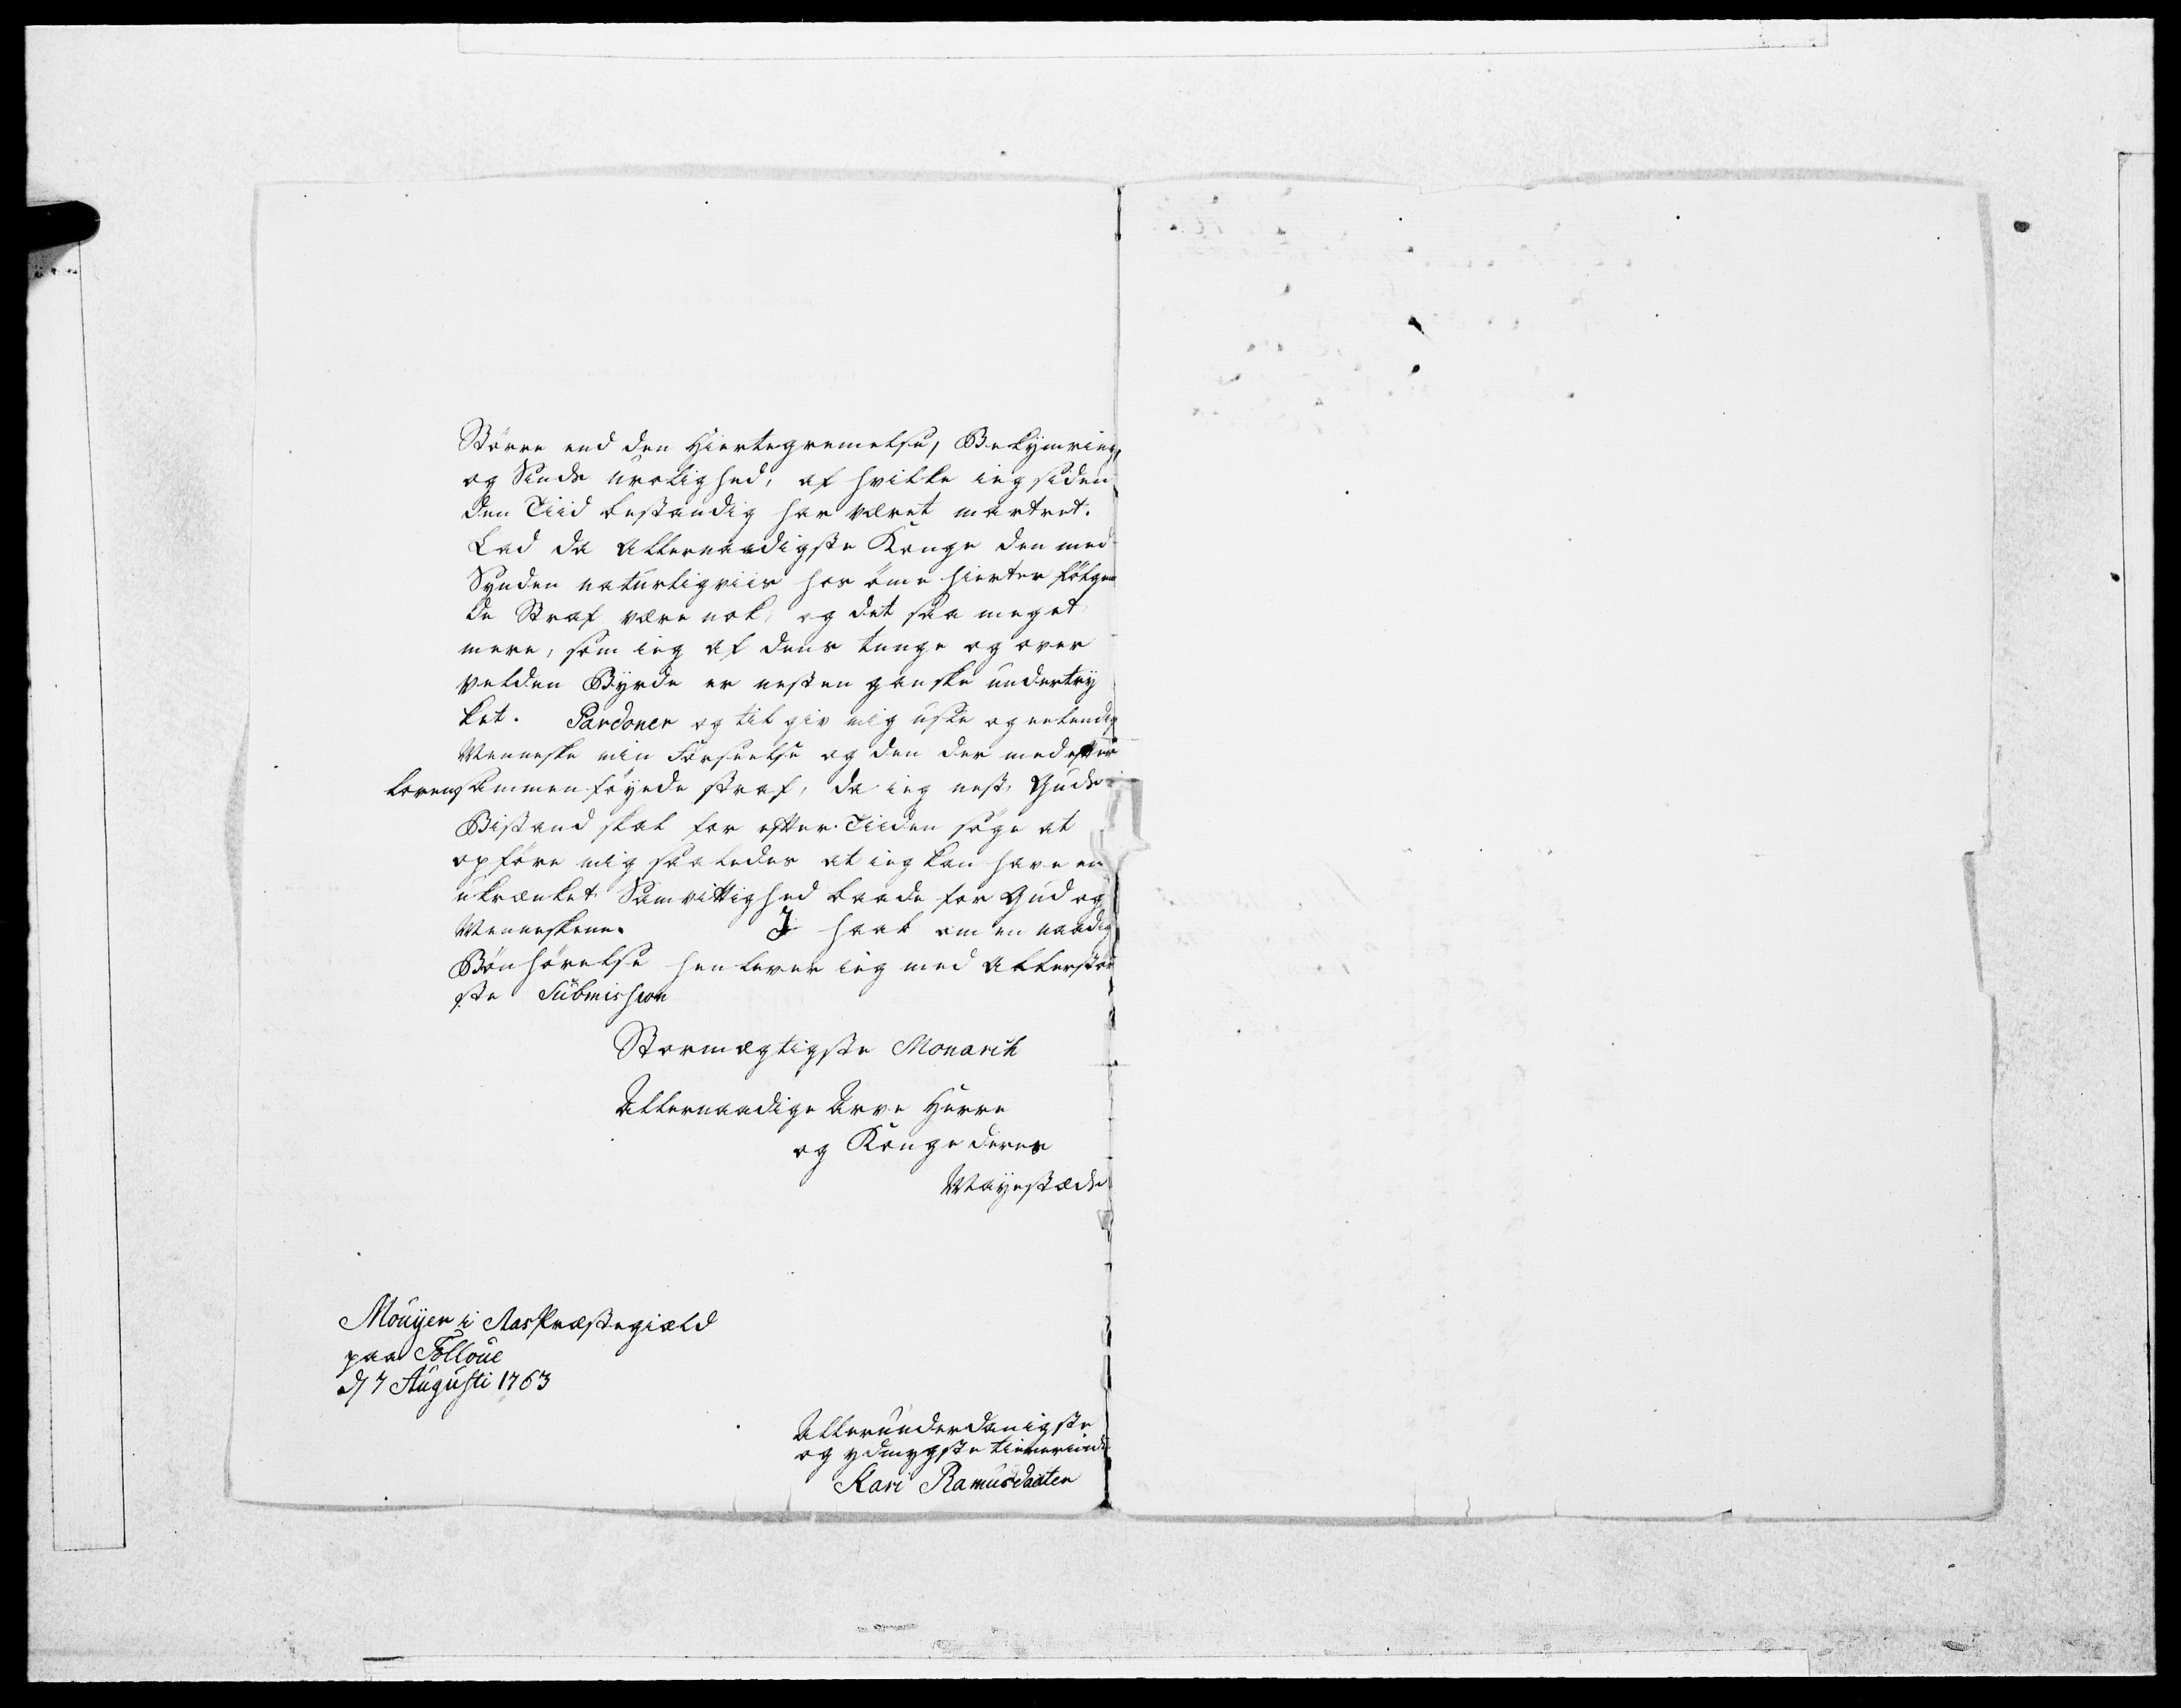 Større end den Hiertegremelse, Bekÿmring,
og Sinds urolighed, af hvilke ieg siden
den Tiid bestandig har været martret.
Lad da Allernaadigste Konge den med
Synden naturligviis hos ôme hierter fôlgen
de Straf være nok, og det saa meget
mere, som ieg af dens tunge og over
velden Bÿrde er nesten ganske undertrÿ
ket. Pardoner og til giv mig uste og eelendig
Menneske min Forseelse og den der med efter
Loven sammenføyede straf, da ieg nest Guds
Bistand skal for efter Tiiden søge at
opføre mig saaledes at ieg kan have en
ukrænket Samvittighed baade for Gud og
Menneskene. J haab om en naadig
Bønhørelse henlever ieg med Allerstør
ste Submission
Stormægtigste Monarch
Allernaadige Arve Herre
og Konge deres
Mayestæds
Mouÿer i Aas Præstegiæld
paa Folloue
d 7 Augusti 1763
Allerunderdanigste
og ydmygste tienerinde
Kari Ramusdaatter